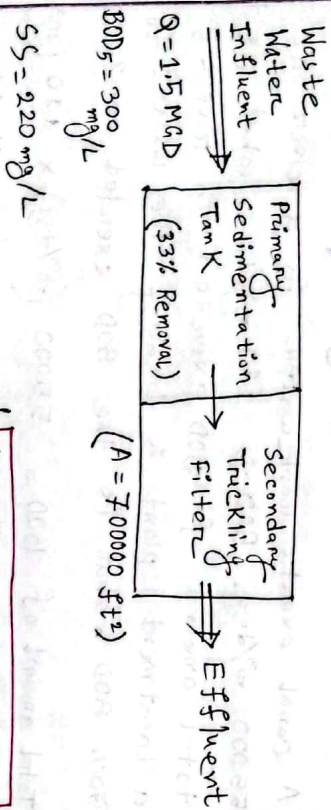 Waste
Water
Influent
Q = 1.5 MGD
BOD₅ = 300
mg/L
SS = 220 mg/L
Primary
Sedimentation
Tank
(33% Removal)
Secondary
Trickling
Filter
(A = 700000 ft²)
Effluent